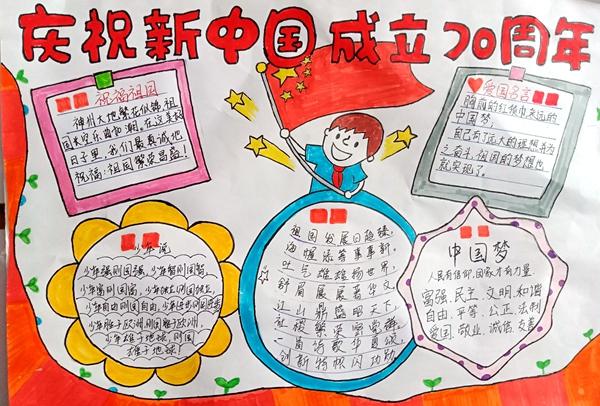 庆祝新中国成立70周年
祝福祖国
神州大地繁花似锦祖
国长空乐曲如潮。在这美好
日子里,我们最真诚地
祝福:祖国繁荣昌盛!
爱国名言
胸前的红领巾永远的
中国梦
自己有了远大的理想并为
之奋斗,祖国的梦想也
就实现了。
少年说
少年强则国强,少年智则国智,
少年富则国富,少年独立则国独立,
少年自由则国自由,少年进步则国进步
少年胜于欧洲,则国胜于欧洲,
少年雄于地球,则国
雄于地球!
祖国发展日趋臻,
事事新,
吐气雄雄扬世界,
舒眉展展著华文,
江山鼎盛明天下,
社稷繁荣
创新特帜闪功勋
中国梦
人民有信仰,国家才有力量.
富强,民主,文明,和谐
自由,平等,公正,法制
爱国,敬业,诚信,友善